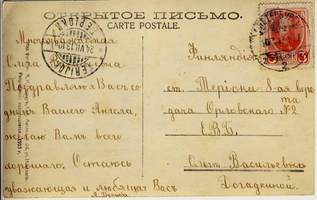 ОТКРЫТОЕ ПИСЬМО.
CARTE POSTALE.
Многоуважаемая
Ольга Васильевна
Поздравляю Васъ со
днемъ Вашего Ангела,
желаю Вамъ всего
хорошаго. Остаюсь
уважающая и любящая Васъ
Финляндiю.
ст. Терiоки 8-ая вер
ста
дача Орловскаго №2
Е.В.Б.
Ольгѣ Васильевнѣ
Догадкиной.